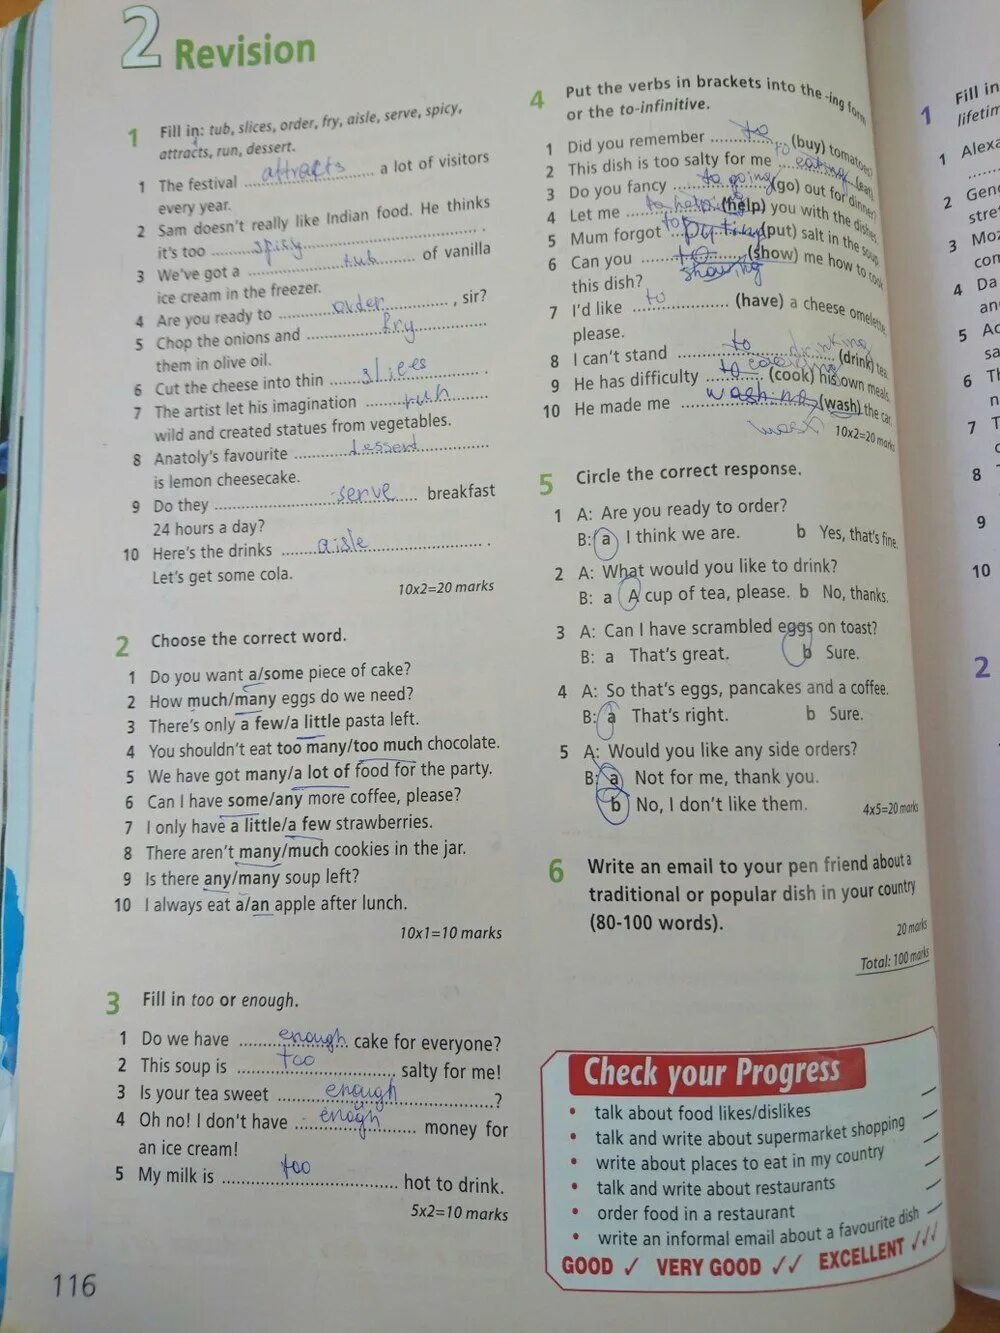 2 Revision
1 Fill in: tub, slices, order, fry, aisle, serve, spicy,
attracts, run, dessert.
1 The festival attracts a lot of visitors
every year.
2 Sam doesn't really like Indian food. He thinks
it's too spisy .
3 We've got a tub of vanilla
ice cream in the freezer.
4 Are you ready to order , sir?
5 Chop the onions and fry
them in olive oil.
6 Cut the cheese into thin slices .
7 The artist let his imagination
wild and created statues from vegetables.
8 Anatoly's favourite dessert
is lemon cheesecake.
9 Do they serve breakfast
24 hours a day?
10 Here's the drinks aisle .
Let's get some cola.
10x2=20 marks
2 Choose the correct word.
1 Do you want a/some piece of cake?
2 How much/many eggs do we need?
3 There's only a few/a little pasta left.
4 You shouldn't eat too many/too much chocolate.
5 We have got many/a lot of food for the party.
6 Can I have some/any more coffee, please?
7 I only have a little/a few strawberries.
8 There aren't many/much cookies in the jar.
9 Is there any/many soup left?
10 I always eat a/an apple after lunch.
10x1=10 marks
3 Fill in too or enough.
1 Do we have enough cake for everyone?
2 This soup is too salty for me!
3 Is your tea sweet enough ?
4 Oh no! I don't have enogh money for
an ice cream!
5 My milk is too hot to drink.
5x2=10 marks
116
4 Put the verbs in brackets into the -ing form
or the to-infinitive.
1 Did you remember to (buy) tomatoes?
2 This dish is too salty for me to eating (eat).
3 Do you fancy to going (go) out for dinner?
4 Let me (help) you with the dishes.
5 Mum forgot to puting (put) salt in the soup.
6 Can you to showing (show) me how to cook
this dish?
7 I'd like to (have) a cheese omelette,
please.
8 I can't stand to drinking (drink) tea.
9 He has difficulty to cooking (cook) his own meals.
10 He made me washing (wash) the car.
wash
10x2=20 marks
5 Circle the correct response.
1 A: Are you ready to order?
B: a I think we are. b Yes, that's fine.
2 A: What would you like to drink?
B: a A cup of tea, please. b No, thanks.
3 A: Can I have scrambled eggs on toast?
B: a That's great. b Sure.
4 A: So that's eggs, pancakes and a coffee.
B: a That's right. b Sure.
5 A: Would you like any side orders?
B: a Not for me, thank you.
b No, I don't like them.
4x5=20 marks
6 Write an email to your pen friend about a
traditional or popular dish in your country
(80-100 words).
20 marks
Total: 100 marks
Check your Progress
• talk about food likes/dislikes
• talk and write about supermarket shopping
• write about places to eat in my country
• talk and write about restaurants
• order food in a restaurant
• write an informal email about a favourite dish
GOOD ✓ VERY GOOD ✓✓ EXCELLENT ✓✓✓
1 Fill in
lifetim
1 Alexa
2
3
4 Da
an
5
sa
6
n
7 T
8
9
10
2